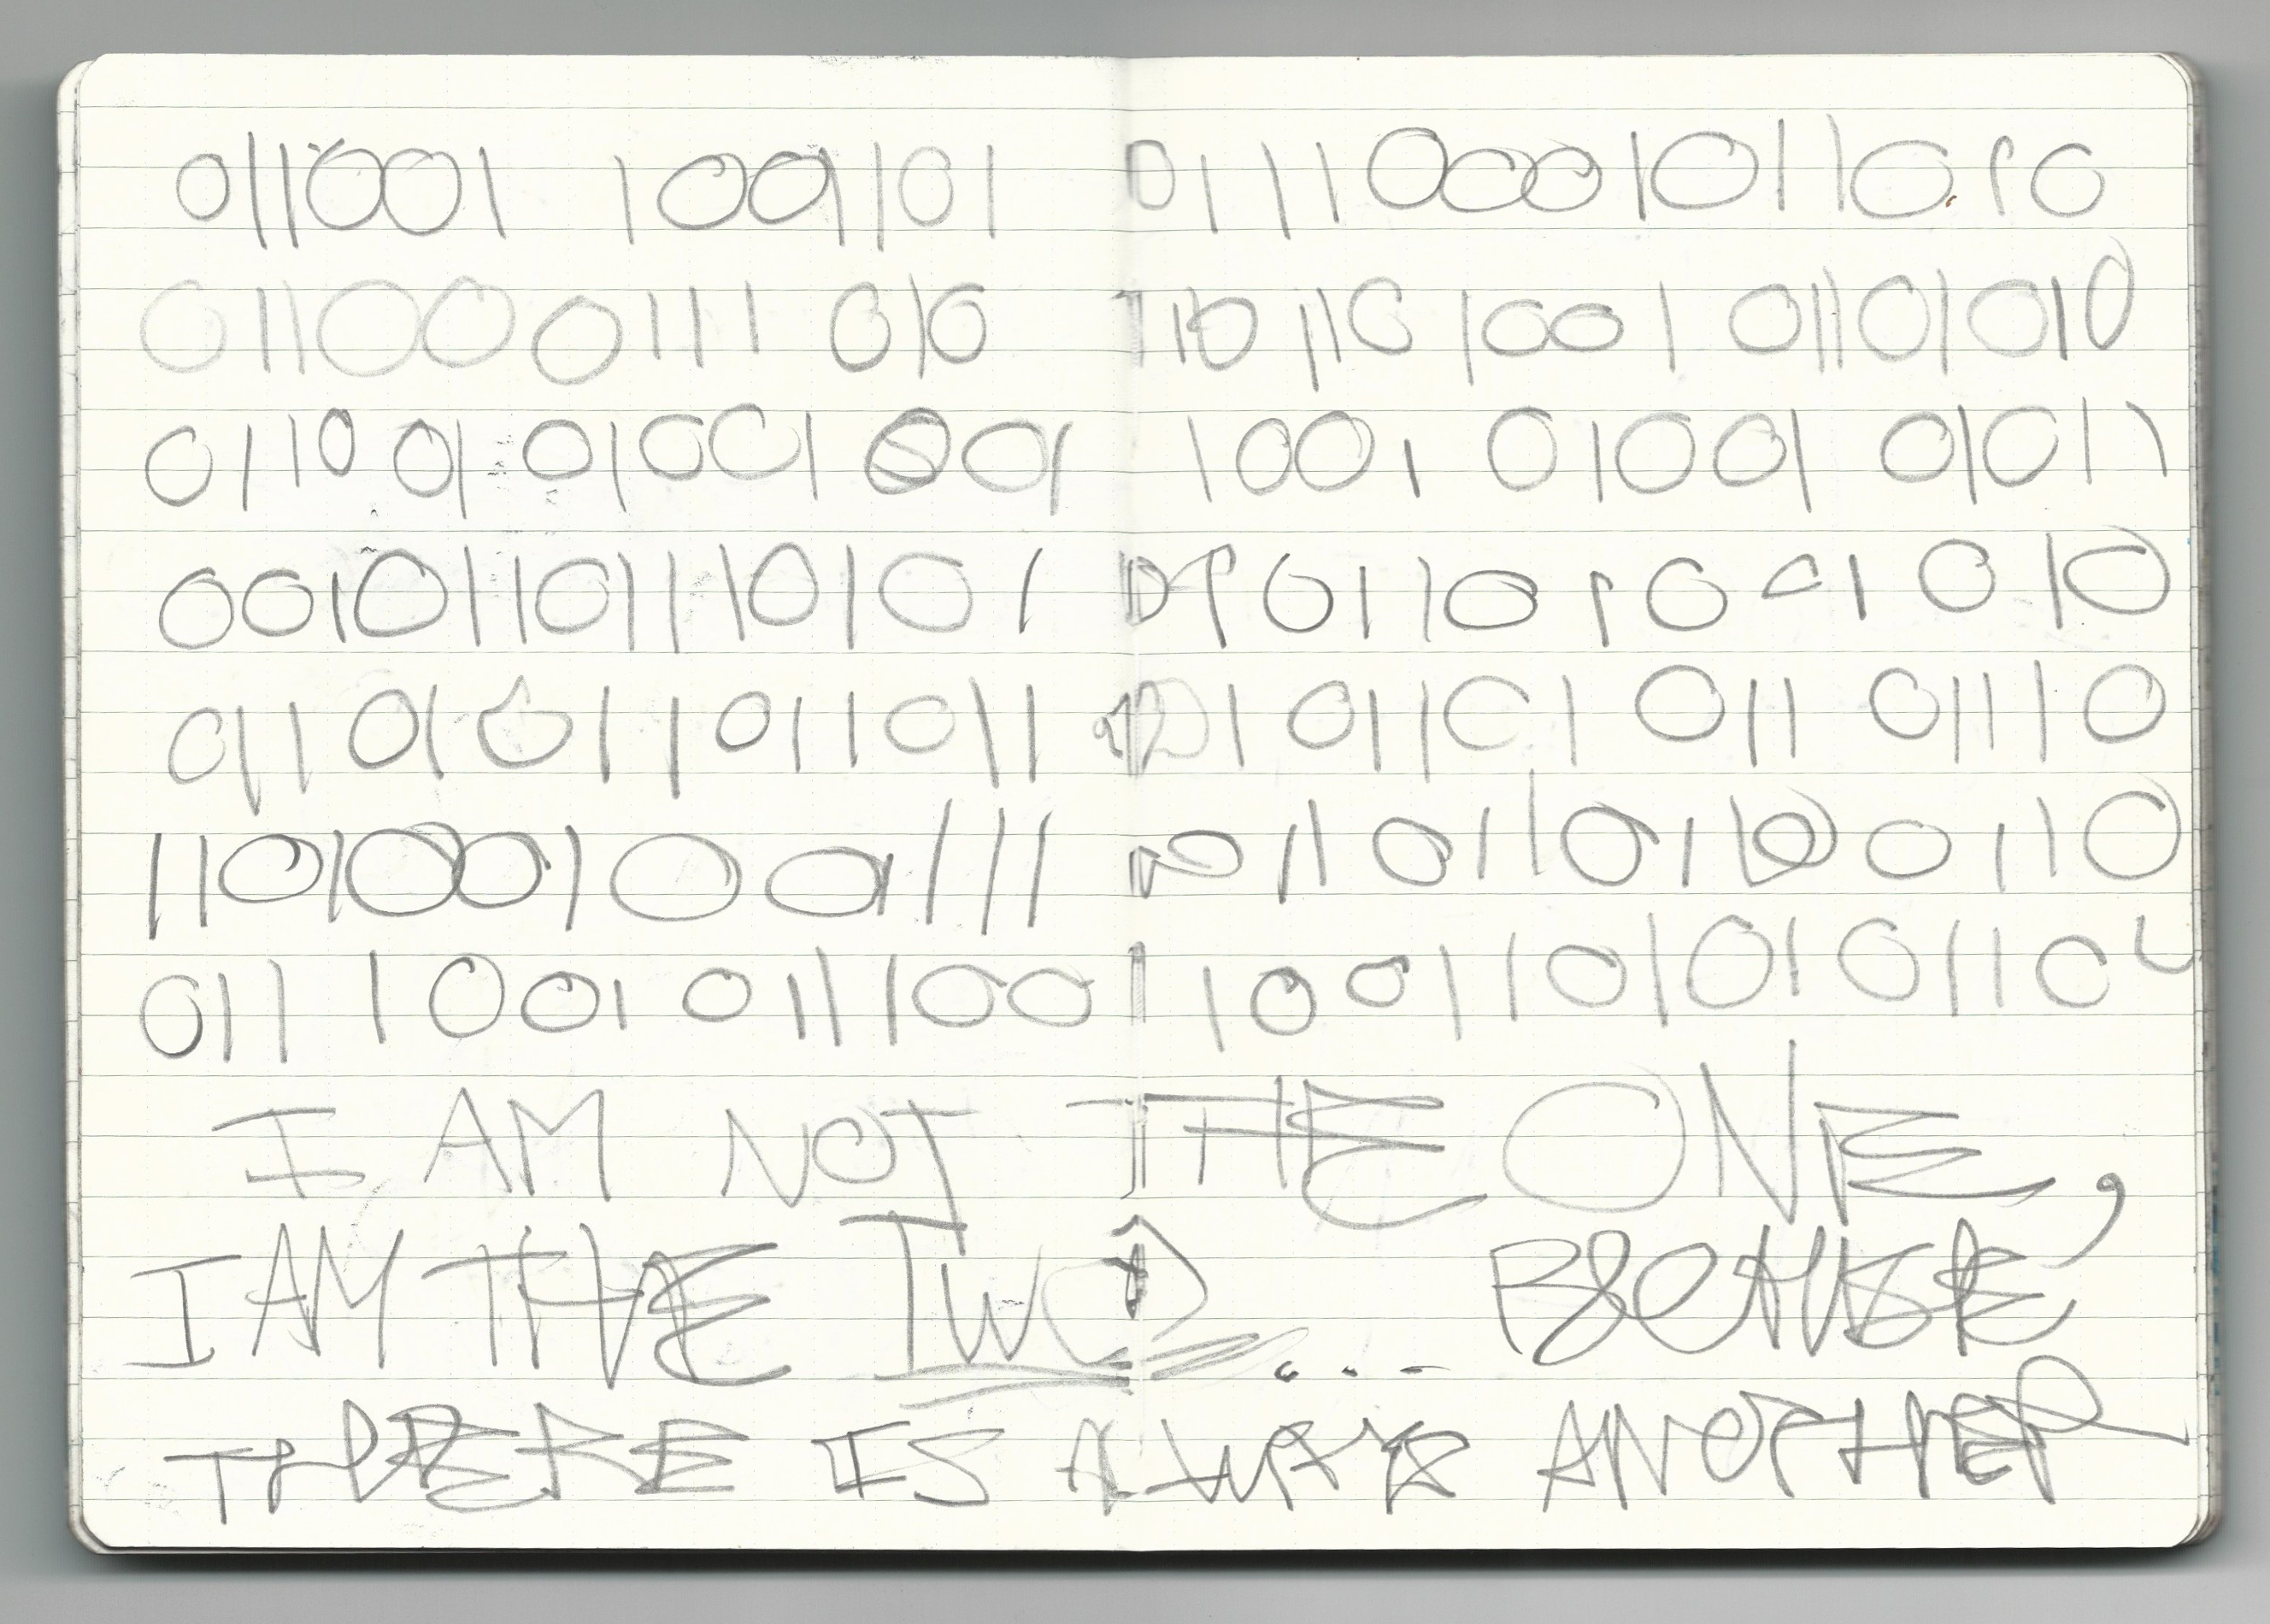 011001 1001101 0111000101101 0
01100 0111 010 110 110 1001 01101010
0110 01 01001 001 1001 01001 01011
001011101110101 01101001010
011 01011011011 101101 011 01110
110100100111 0110110110 0110
011 1001 011100 1 1001101010110
I AM NOT THE ONE,
I AM THE TWO... BECAUSE
THERE IS ALWAYS ANOTHER